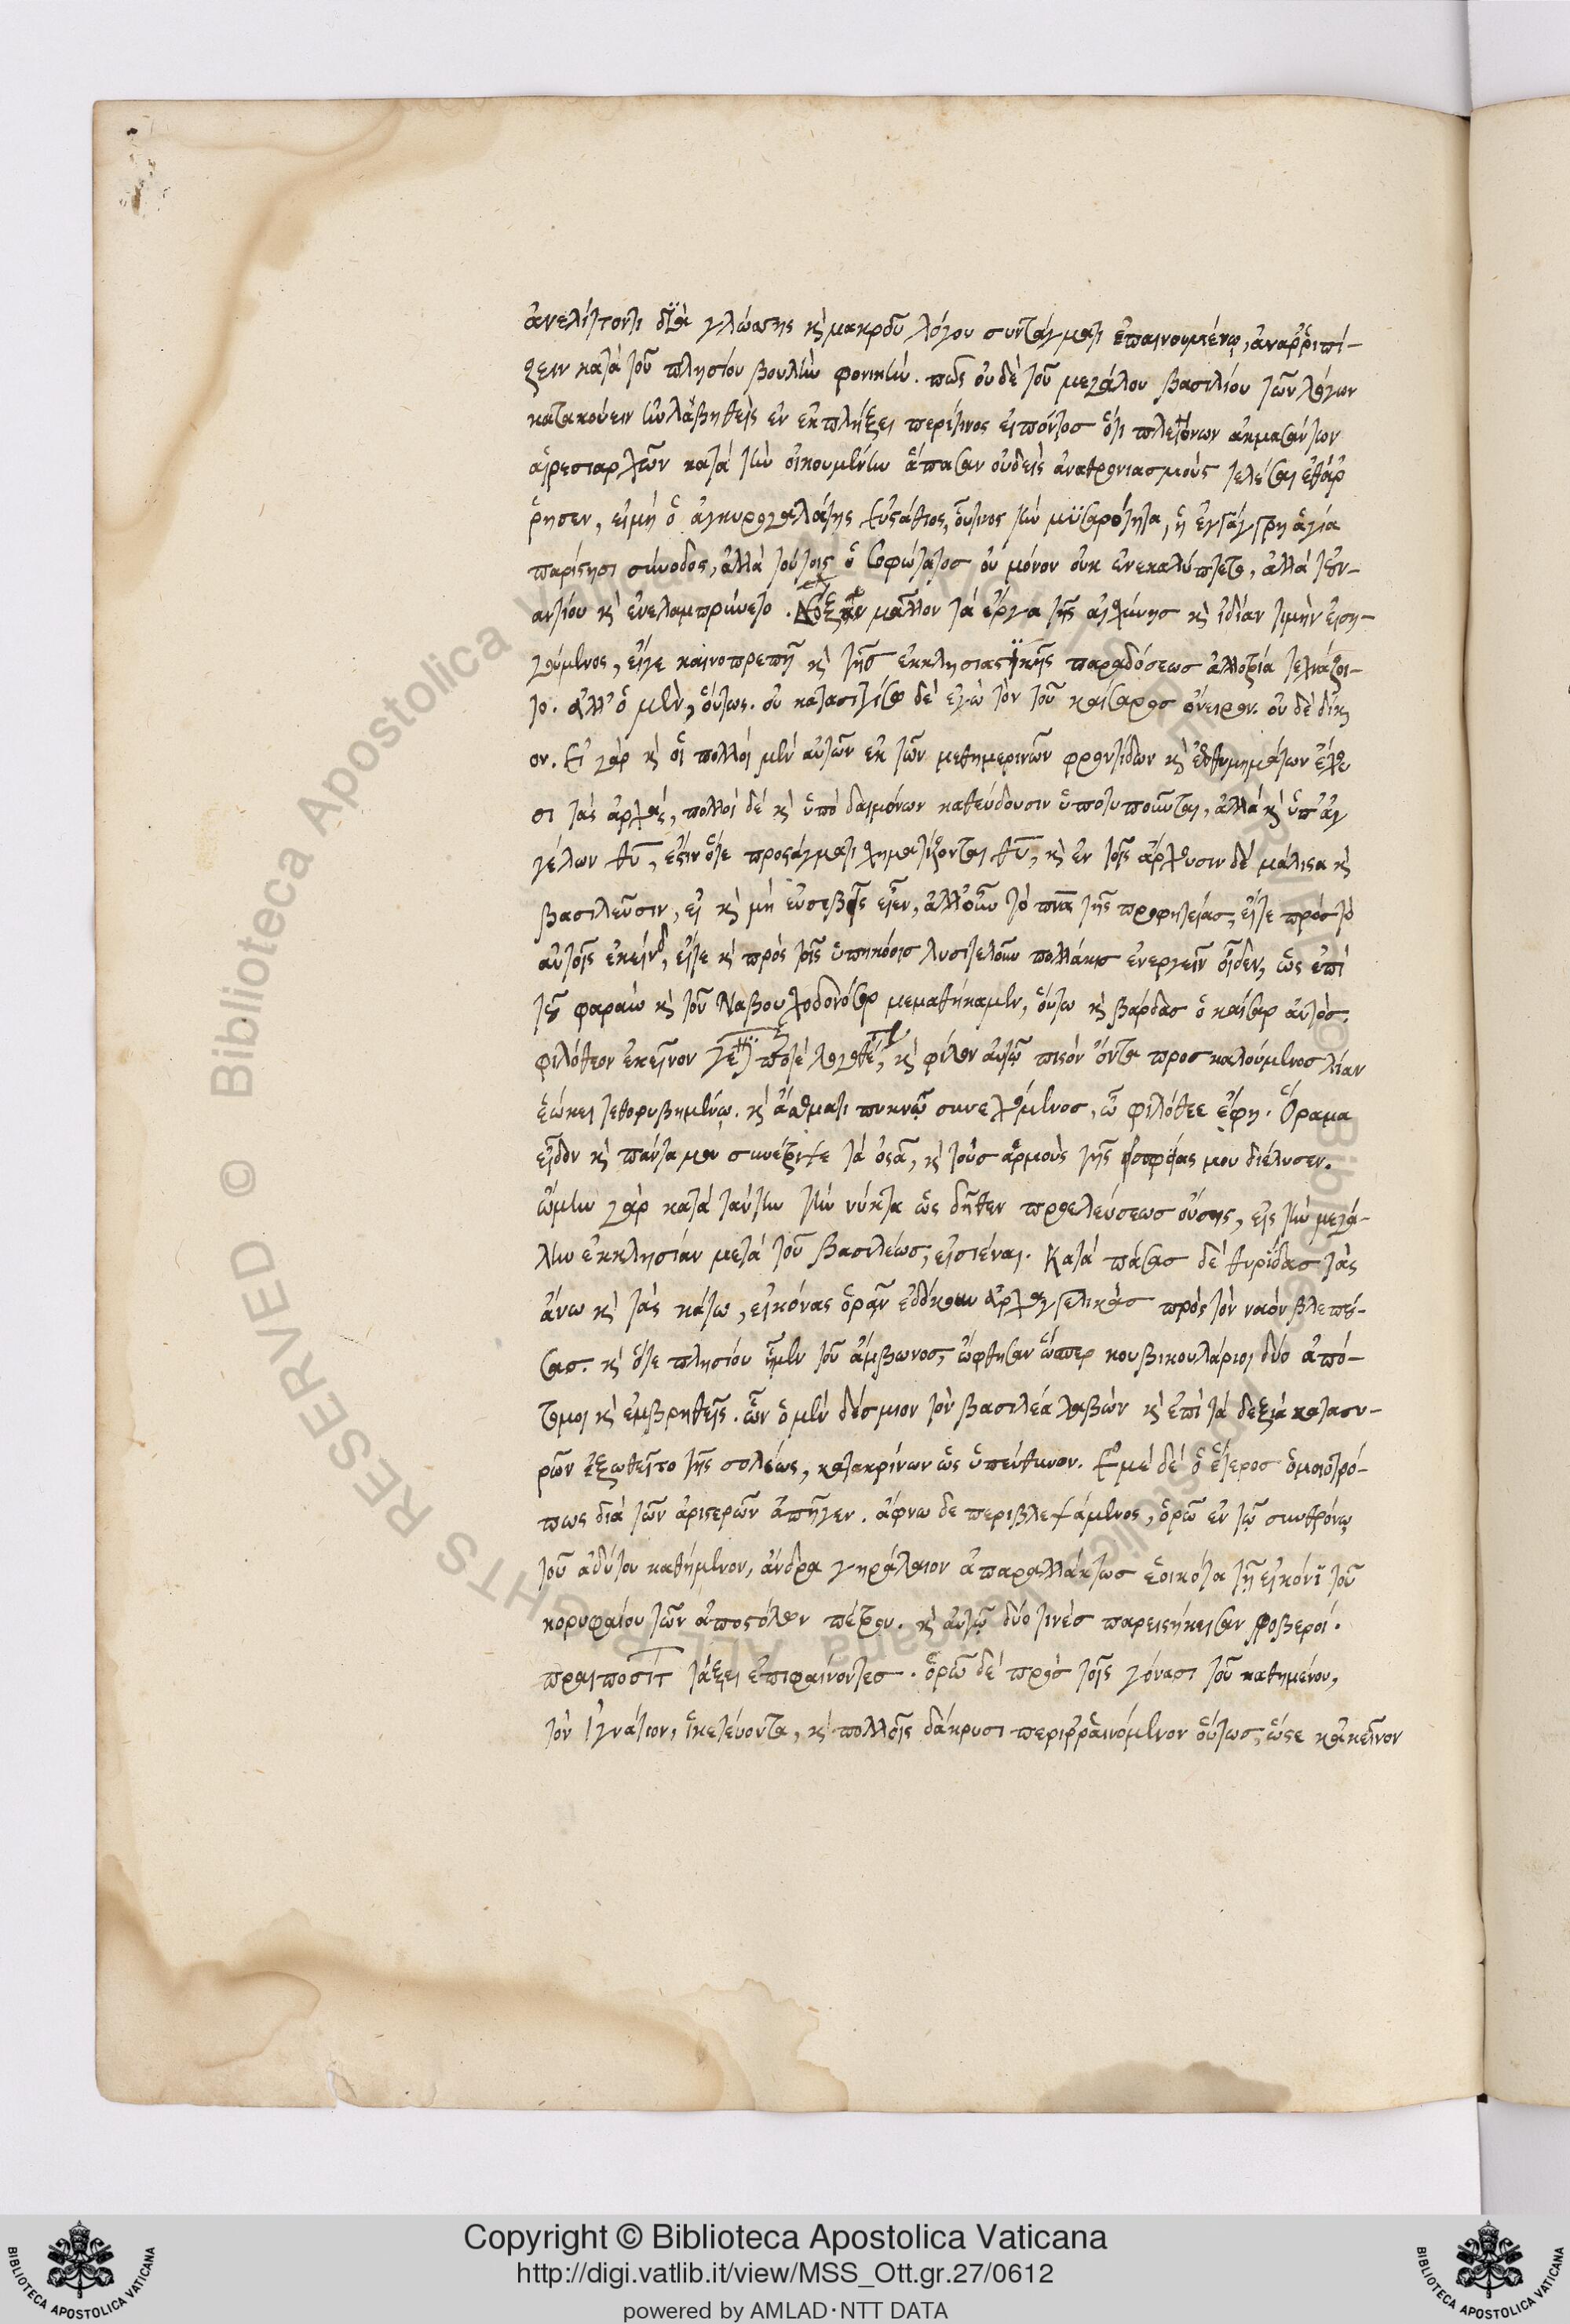 ἀνελίττοντι διὰ γλώσσης κὶ μακροῦ λόγου συντάγματι ἐπαινουμένῳ, ἀναῤῥιπί-
ζειν κατὰ τοῦ πλησίου βουλὴν φονικὴν. πῶς οὐδὲ τοῦ μεγάλου βασιλίου τῶν λόγων
κατακούειν ηὐλαβήθη εἰς ἐν ἐκπλήξει περίτινος εἰπόντος ὅτι πλειόνων ἀκμασάντων
αἱρεσιαρχῶν κατὰ τὴν οἰκουμένην ἅπασαν οὐδεὶς ἀναθρονιασμοὺς τελέσαι ἐθάρ
ρησεν, εἰμὴ ὁ ἀγκυρογαλάτης εὐστάθιος, οὗτινος τὴν μυσαρότητα, ἡ ἐν γάγγρη ἁγία
παρίστησι σύνοδος, ἀλλὰ τούτοις ὁ σοφώτατος οὐ μόνον οὐκ ἐνεκαλύπτετο, ἀλλὰ τοὐν-
αντίον κὶ ἐνελαμπρύνετο. μᾶλλον τὰ ἔργα τῆς αἰσχύνης κὶ ἰδίαν τιμὴν εἰση-
γούμενος, εἴγε καινοπρεπῆ κὶ τῆς ἐκκλησιαστικῆς παραδόσεως ἀλλοτρία τεχνάζοι-
το. ἀλλ' ὁ μὲν, οὕτως. οὐ κατασιγήσω δὲ ἐγὼ τὸν τοῦ καίσαρος ὄνειρον. οὐ δὲ δίκ
ον. Εἰ γὰρ κὶ οἱ πολλοὶ μὲν αὐτῶν ἐκ τῶν μεθημερινῶν φροντίδων κὶ ἐνθυμημάτων ἔχου
σι τὰς ἀρχάς, πολλοὶ δὲ κὶ ὑπὸ δαιμόνων καθεύδουσιν ὑποτυποῦνται, ἀλλὰ κὶ ὑπ' ἀγ
γέλων θυ, ἔστιν ὅτε προστάγματι χηματίζονται θυ, κὶ ἐν τοῖς ἄρχουσιν δὲ μάλιστα κὶ
βασιλεῦσιν, εἰ κὶ μὴ εὐσεβεῖς εἶεν, ἀλλ' οὖν τὸ πνα τῆς προφητείας, εἴτε πρὸς τὸ
αὐτοῖς ἐκείνο, εἴτε κὶ πρὸς τοῖς ὑπηκόοις λυσιτελοῦν πολλάκις ἐνεργεῖν οἶδεν, ὡς ἐπὶ
τοῦ φαραὼ κὶ τοῦ Ναβουχοδονόσορ μεμαθήκαμεν, οὕτω κὶ βάρδας ὁ καίσαρ αὐτὸς.
φιλόθεον ἐκεῖνον ποτὲ λογοθέτ, κὶ φίλον αὐτῷ πιστὸν ὄντα προσκαλούμενος λίαν
ἐῴκει τεθορυβημένῳ. κὶ ἄσθματι πυκνῷ συνεχόμενος, ὦ φιλόθεε ἔφη. Ὅραμα
εἶδον κὶ πάντα μου συνέτριψε τὰ ὀστᾶ, κὶ τοὺς ἁρμοὺς τῆς μου διέλυσεν.
ᾤμην γὰρ κατὰ ταύτην τὴν νύκτα ὡς δῆθεν προελεύσεως οὔσης, εἰς τὴν μεγά-
λην ἐκκλησίαν μετὰ τοῦ βασιλέως, εἰσιέναι. Κατὰ πάσας δὲ θυρίδας τὰς
ἄνω κὶ τὰς κάτω, εἰκόνας ὁρᾶν ἐδόκουν ἀρχαγγελικὰς πρὸς τὸν ναὸν βλεπού-
σας. κὶ ὅτε πλησίον ἦμεν τοῦ ἄμβωνος, ὤφθησαν ὥσπερ κουβικουλάριοι δύο ἀπό-
τομοι κὶ ἐμβριθεῖς. ὧν ὁ μὲν δέσμιον τὸν βασιλέα λαβὼν κὶ ἐπὶ τὰ δεξιὰ κατασυ-
ρῶν ἐξωθεῖτο τῆς σολέως, κατακρίνων ὡς ὑπεύθυνον. Ἐμὲ δὲ ὁ ἕτερος ὁμοιοτρό-
πως διὰ τῶν ἀριστερῶν ἀπῆγεν. ἄφνω δε περιβλεψάμενος, ὁρῶ ἐν τῷ συνθρόνῳ
τοῦ ἀδύτου καθήμενον, ἄνδρα γηράλαιον ἀπαραλλάκτως ἐοικότα τῇ εἰκόνϊ τοῦ
κορυφαίου τῶν ἀποστόλων πέτρου. κὶ αὐτῷ δύο τινὲς παρειστήκεισαν φοβεροί.
πραιποσιτ τάξει ἐπιφαίνοντες. ὁρῶ δὲ πρὸς τοῖς γόνασι τοῦ καθημένου,
τὸν Ἰγνάτιον, ἱκετεύοντα, κὶ πολλοῖς δάκρυσι περιῤῥαινόμενον οὕτως, ὥστε κἀκεῖνον